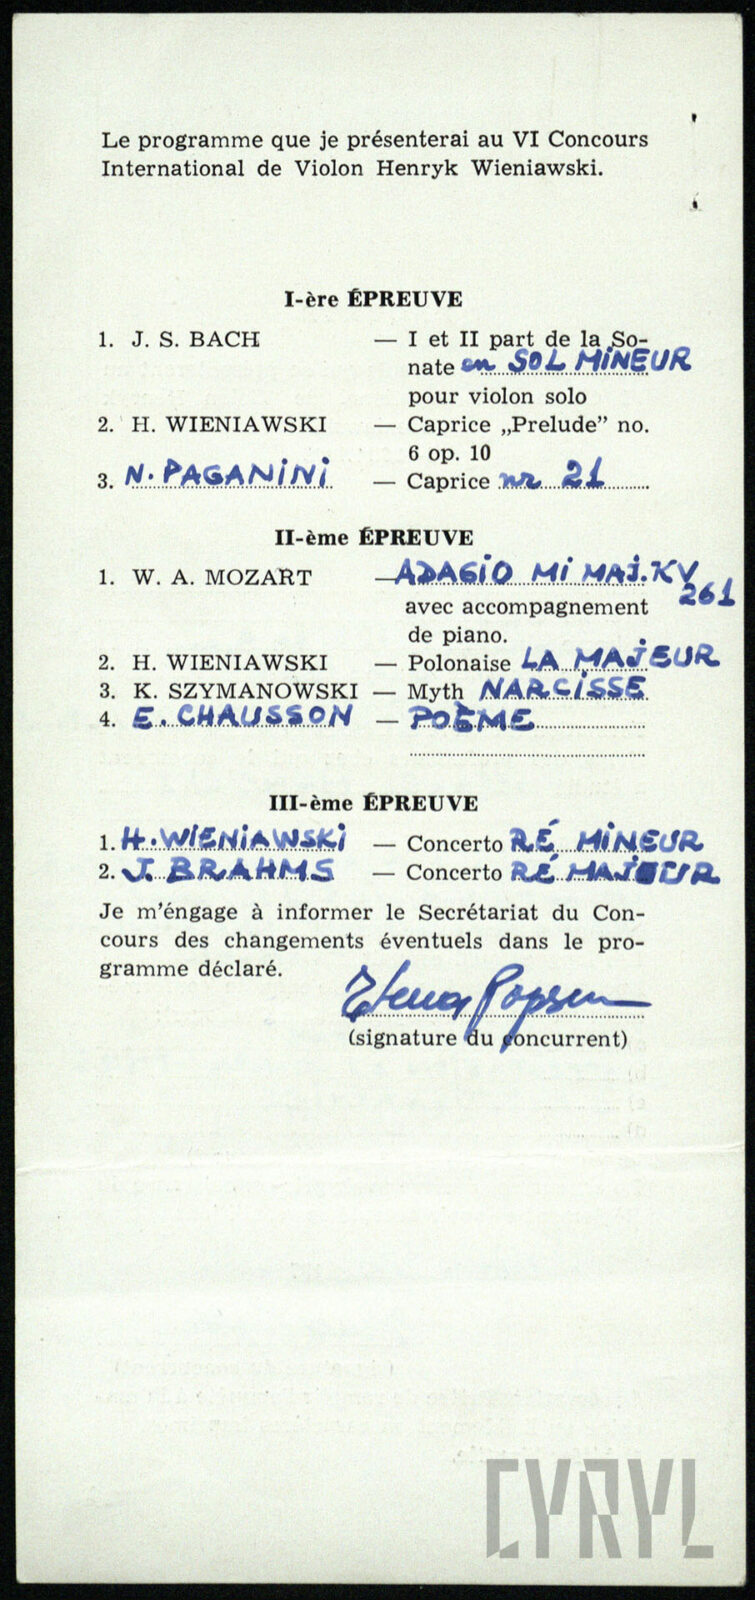 Le programme que je présenterai au VI Concours
International de Violon Henryk Wieniawski.
I-ère ÉPREUVE
1. J. S. BACH — I et II part de la So-
nate en SOL MINEUR
pour violon solo
2. H. WIENIAWSKI — Caprice „Prelude” no.
6 op. 10
3. N. PAGANINI — Caprice nr 21
II-ème ÉPREUVE
1. W. A. MOZART — ADAGIO MI MAJ. KV
261
avec accompagnement
de piano.
2. H. WIENIAWSKI — Polonaise LA MAJEUR
3. K. SZYMANOWSKI — Myth NARCISSE
4. E. CHAUSSON — POÈME
III-ème ÉPREUVE
1. H. WIENIAWSKI — Concerto RÉ MINEUR
2. J. BRAHMS — Concerto RÉ MAJEUR
Je m'éngage à informer le Secrétariat du Con-
cours des changements éventuels dans le pro-
gramme déclaré.
(signature du concurrent)
CYRYL